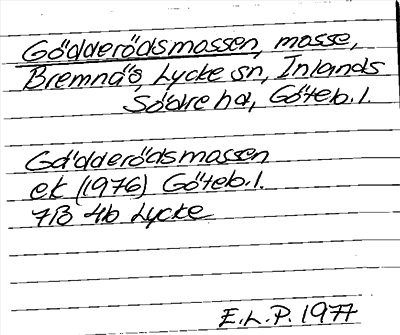 Gödderödsmossen, mosse,
Bremnäs, Lycke sn, Inlands
Södre hd, Göteb.l.
Gödderödsmossen
ek (1976) Göteb.l.
7B 4b Lycke
E.L.P. 1977